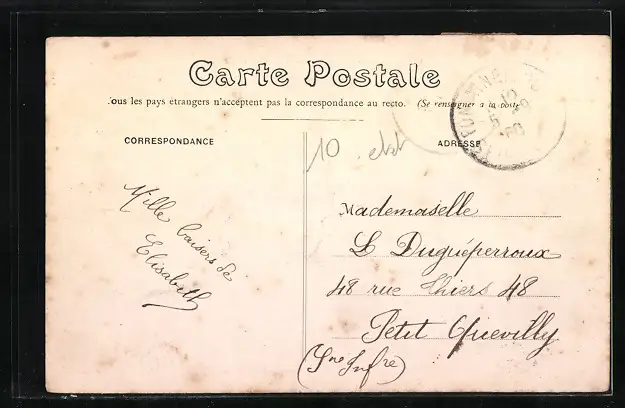 Carte Postale
Tous les pays étrangers n'acceptent pas la correspondance au recto. (Se renseigner à la poste
CORRESPONDANCE
ADRESSE
10
Mille baisers de
Elisabeth
Mademoiselle
L Duguéperroux
48 rue Thiers 48
Petit Quevilly
(Sne Infre)